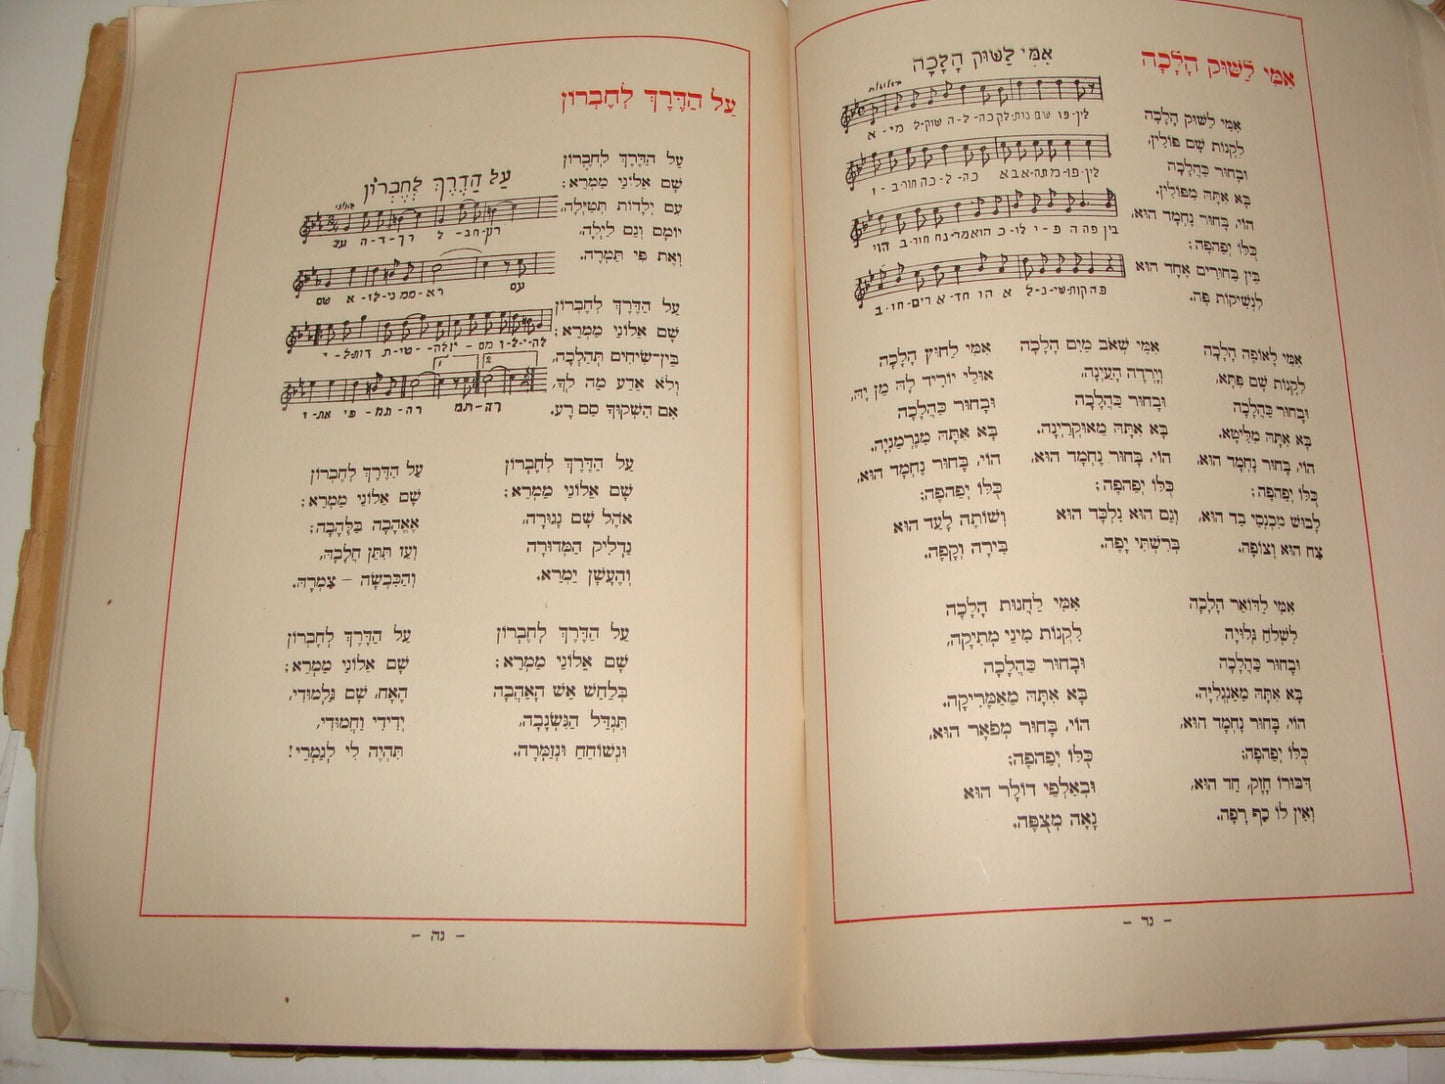 אִמִּי לַשּׁוּק הָלָכָה
אִמִּי לַשּׁוּק הָלָכָה
אִמִּי לַשּׁוּק הָלָכָה
לִקְנוֹת שָׁם פּוֹלִין,
וּבָחוּר כַּהֲלָכָה
בָּא אִתָּהּ מִפּוֹלִין.
הוֹי, בָּחוּר נֶחְמָד הוּא,
כֻּלּוֹ יְפֵהפֶה;
בֵּין בַּחוּרִים אֶחָד הוּא
לִנְשִׁיקוֹת פֶּה.
אִמִּי לָאוֹפֶה הָלָכָה
לִקְנוֹת שָׁם פִּתָּא,
וּבָחוּר כַּהֲלָכָה
בָּא אִתָּהּ מִלִּיטָא.
הוֹי, בָּחוּר נֶחְמָד הוּא,
כֻּלּוֹ יְפֵהפֶה;
לָבוּשׁ מִכְנְסֵי בַד הוּא,
צַח הוּא וְצוֹפֶה.
אִמִּי שְׁאֹב מַיִם הָלָכָה
וַיָּרְדָה הָעַיְנָה,
וּבָחוּר כַּהֲלָכָה
בָּא אִתָּהּ מֵאוּקְרַיְנָה.
הוֹי, בָּחוּר נֶחְמָד הוּא,
כֻּלּוֹ יְפֵהפֶה;
וְגַם הוּא נִלְכָּד הוּא
בְּרִשְׁתִּי יָפֶה.
אִמִּי לַחוּץ הָלָכָה
אוּלַי יוֹרִיד לָהּ מָן יָהּ,
וּבָחוּר כַּהֲלָכָה
בָּא אִתָּהּ מִגֶּרְמַנְיָה.
הוֹי, בָּחוּר נֶחְמָד הוּא,
כֻּלּוֹ יְפֵהפֶה;
וְשׁוֹתֶה לָעַד הוּא
בִּירָה וְקָפֶה.
אִמִּי לַדּוֹאַר הָלָכָה
לִשְׁלֹחַ גְּלוּיָה
וּבָחוּר כַּהֲלָכָה
בָּא אִתָּהּ מֵאַנְגְלִיָּה.
הוֹי, בָּחוּר נֶחְמָד הוּא,
כֻּלּוֹ יְפֵהפֶה;
דִּבּוּרוֹ חָזָק, חַד הוּא,
וְאֵין לוֹ כַף רָפָה.
אִמִּי לַחֲנוּת הָלָכָה
לִקְנוֹת מִינֵי מְתִיקָה,
וּבָחוּר כַּהֲלָכָה
בָּא אִתָּהּ מֵאַמֶרִיקָה.
הוֹי, בָּחוּר מְפֹאָר הוּא,
כֻּלּוֹ יְפֵהפֶה;
וּבְאַלְפֵי דוֹלָר הוּא
נָאֶה מְצֻפֶּה.
– נד –
עַל הַדֶּרֶךְ לְחֶבְרוֹן
עַל הַדֶּרֶךְ לְחֶבְרוֹן
עַל הַדֶּרֶךְ לְחֶבְרוֹן
שָׁם אֵלוֹנֵי מַמְרֵא;
עִם יְלָדוֹת תְּטַיְּלָה,
יוֹמָם וְגַם לַיְלָה,
וְאֶת פִּי תַּמְרֶה.
עַל הַדֶּרֶךְ לְחֶבְרוֹן
שָׁם אֵלוֹנֵי מַמְרֵא;
בֵּין־שִׂיחִים תְּהַלְּכָה,
וְלֹא אֵדַע מַה לְּךָ,
אִם הִשְׁקוּךָ סַם רָע.
עַל הַדֶּרֶךְ לְחֶבְרוֹן
שָׁם אֵלוֹנֵי מַמְרֵא;
אֹהֶל שָׁם נָגוּרָה,
נַדְלִיק הַמְּדוּרָה
וְהֶעָשָׁן יַמְרֵא.
עַל הַדֶּרֶךְ לְחֶבְרוֹן
שָׁם אֵלוֹנֵי מַמְרֵא;
אֶאֱהָבָה בַּלֶּהָבָה;
וְעֵז תִּתֵּן חֲלָבָהּ,
וְהַכִּבְשָׂה – צַמְרָהּ.
עַל הַדֶּרֶךְ לְחֶבְרוֹן
שָׁם אֵלוֹנֵי מַמְרֵא;
בְּלַחַשׁ אֵשׁ הָאַהֲבָה
תִּגְדַּל הַנִּשְׂגָּבָה,
וּנְשׂוֹחַח וּנְזַמֵּרָה.
עַל הַדֶּרֶךְ לְחֶבְרוֹן
שָׁם אֵלוֹנֵי מַמְרֵא;
הֶאָח, שָׁם גַּלְמוּדִי,
יְדִידִי וַחֲמוּדִי,
תִּהְיֶה לִי לְגַמְרֵי!
– נה –